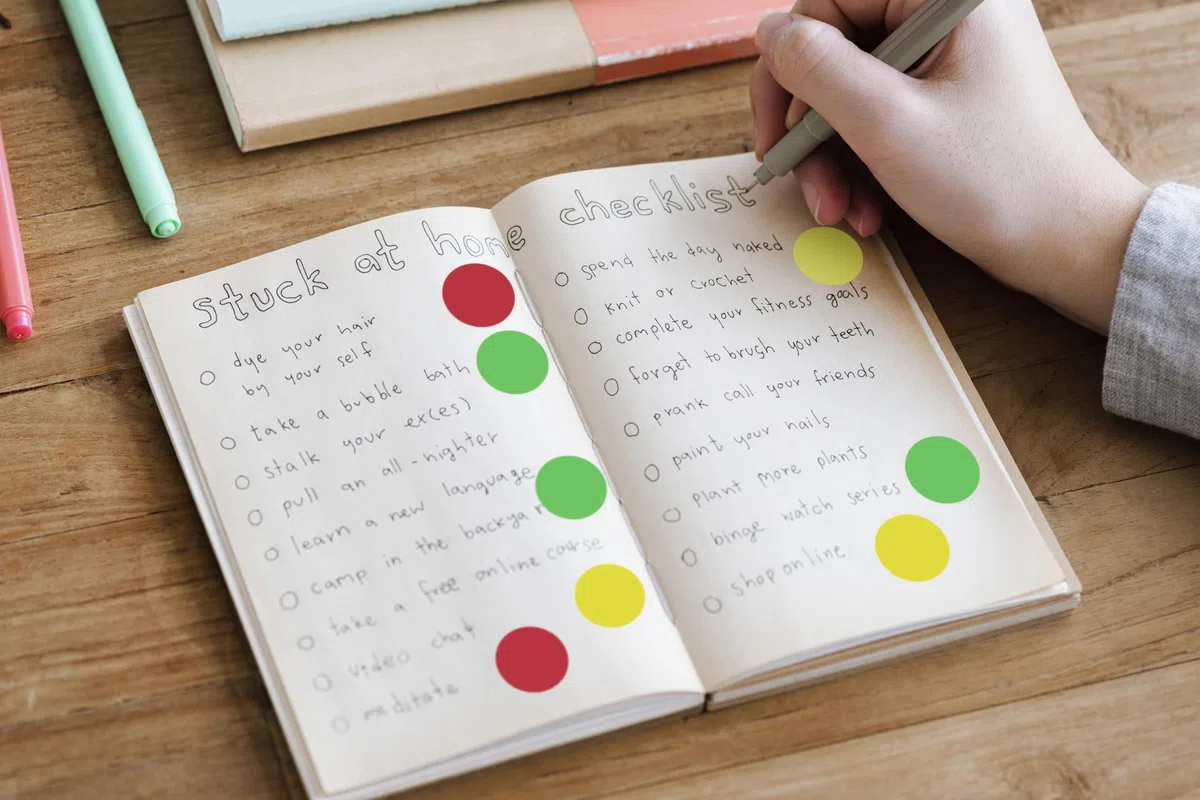 stuck at home checklist
dye your hair
by your self
take a bubble bath
stalk your ex(es)
pull an all-nighter
learn a new language
camp in the
take a free online course
video chat
meditate
spend the day naked
knit or crochet
complete your fitness goals
forget to brush your teeth
prank call your friends
paint your nails
plant more plants
binge watch series
shop online